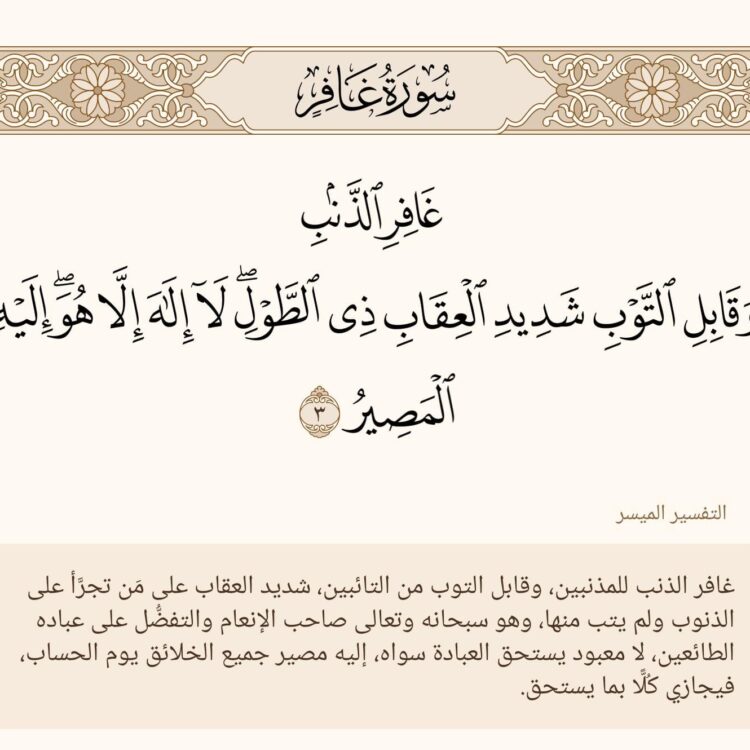 سُورَةُ غَافِرٍ
غَافِرِ ٱلذَّنۢبِ
وَقَابِلِ ٱلتَّوۡبِ شَدِيدِ ٱلۡعِقَابِ ذِی ٱلطَّوۡلِۖ لَاۤ إِلَـٰهَ إِلَّا هُوَۖ إِلَیۡهِ
ٱلۡمَصِیرُ ٣
التفسير الميسر
غافر الذنب للمذنبين، وقابل التوب من التائبين، شديد العقاب على مَن تجرَّأ على
الذنوب ولم يتب منها، وهو سبحانه وتعالى صاحب الإنعام والتفضُّل على عباده
الطائعين، لا معبود يستحق العبادة سواه، إليه مصير جميع الخلائق يوم الحساب،
فيجازي كُلًّا بما يستحق.